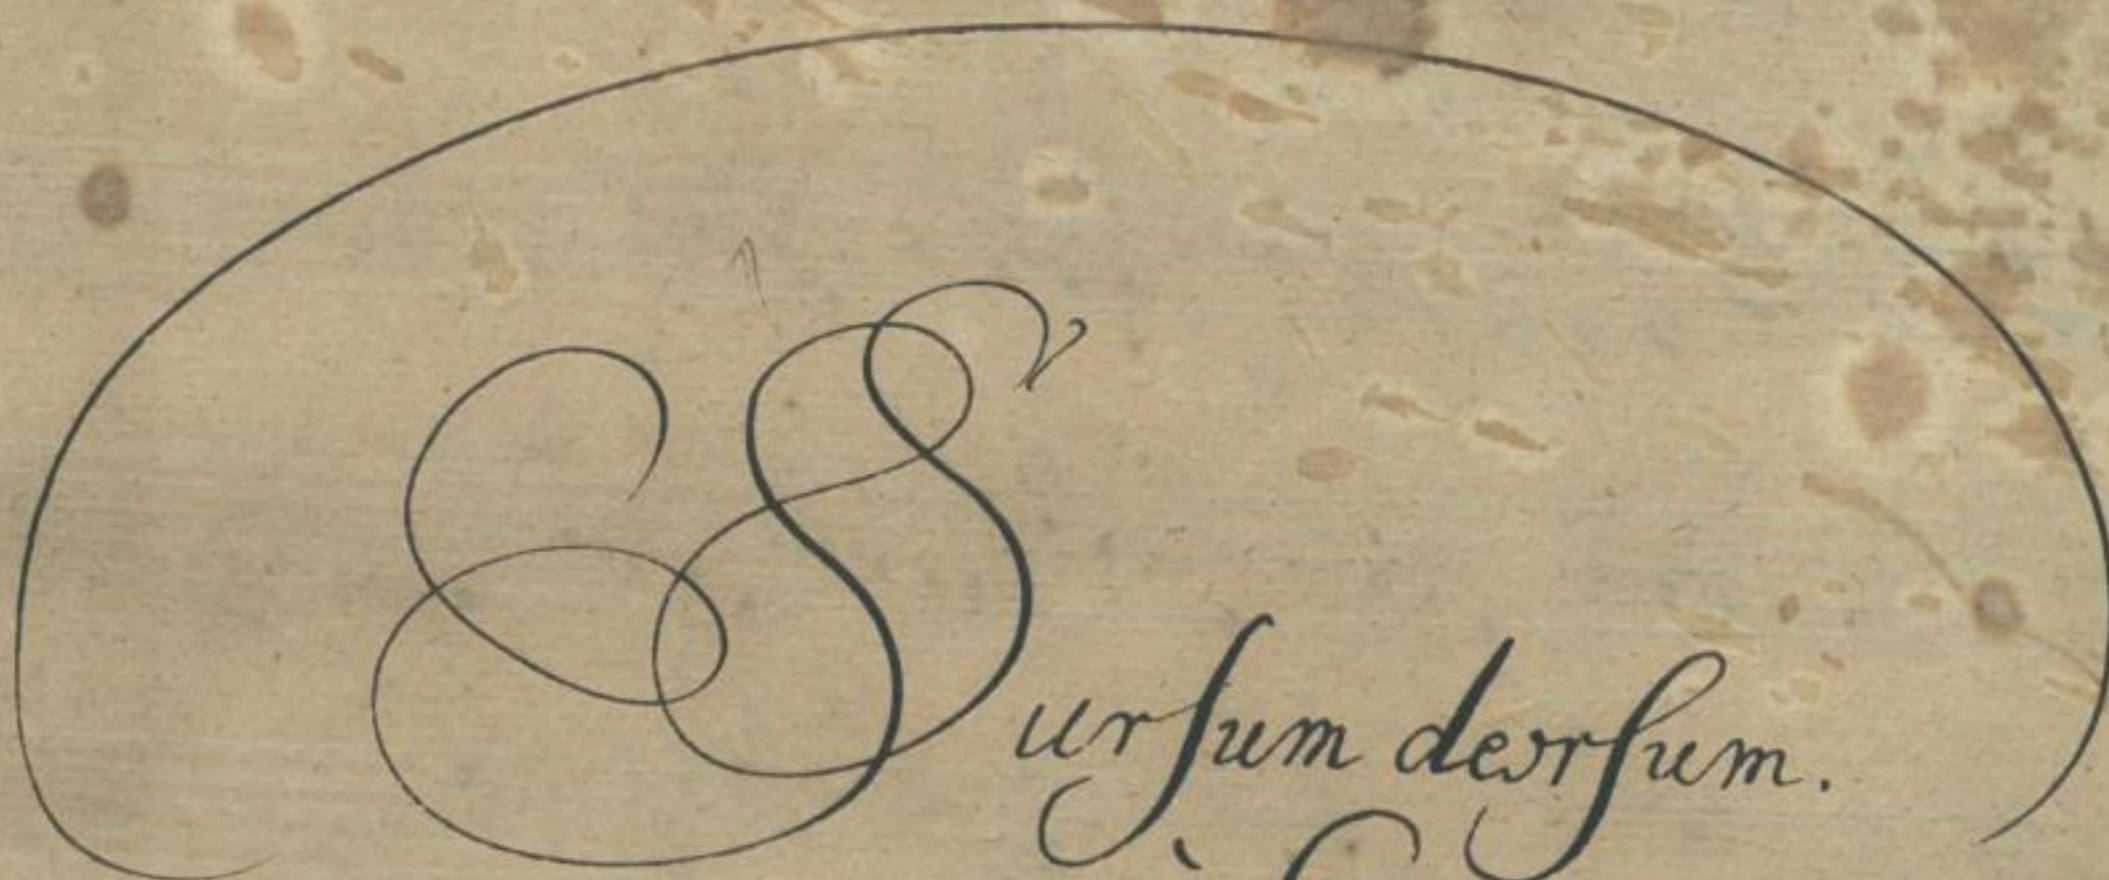 Surſum deorſum.